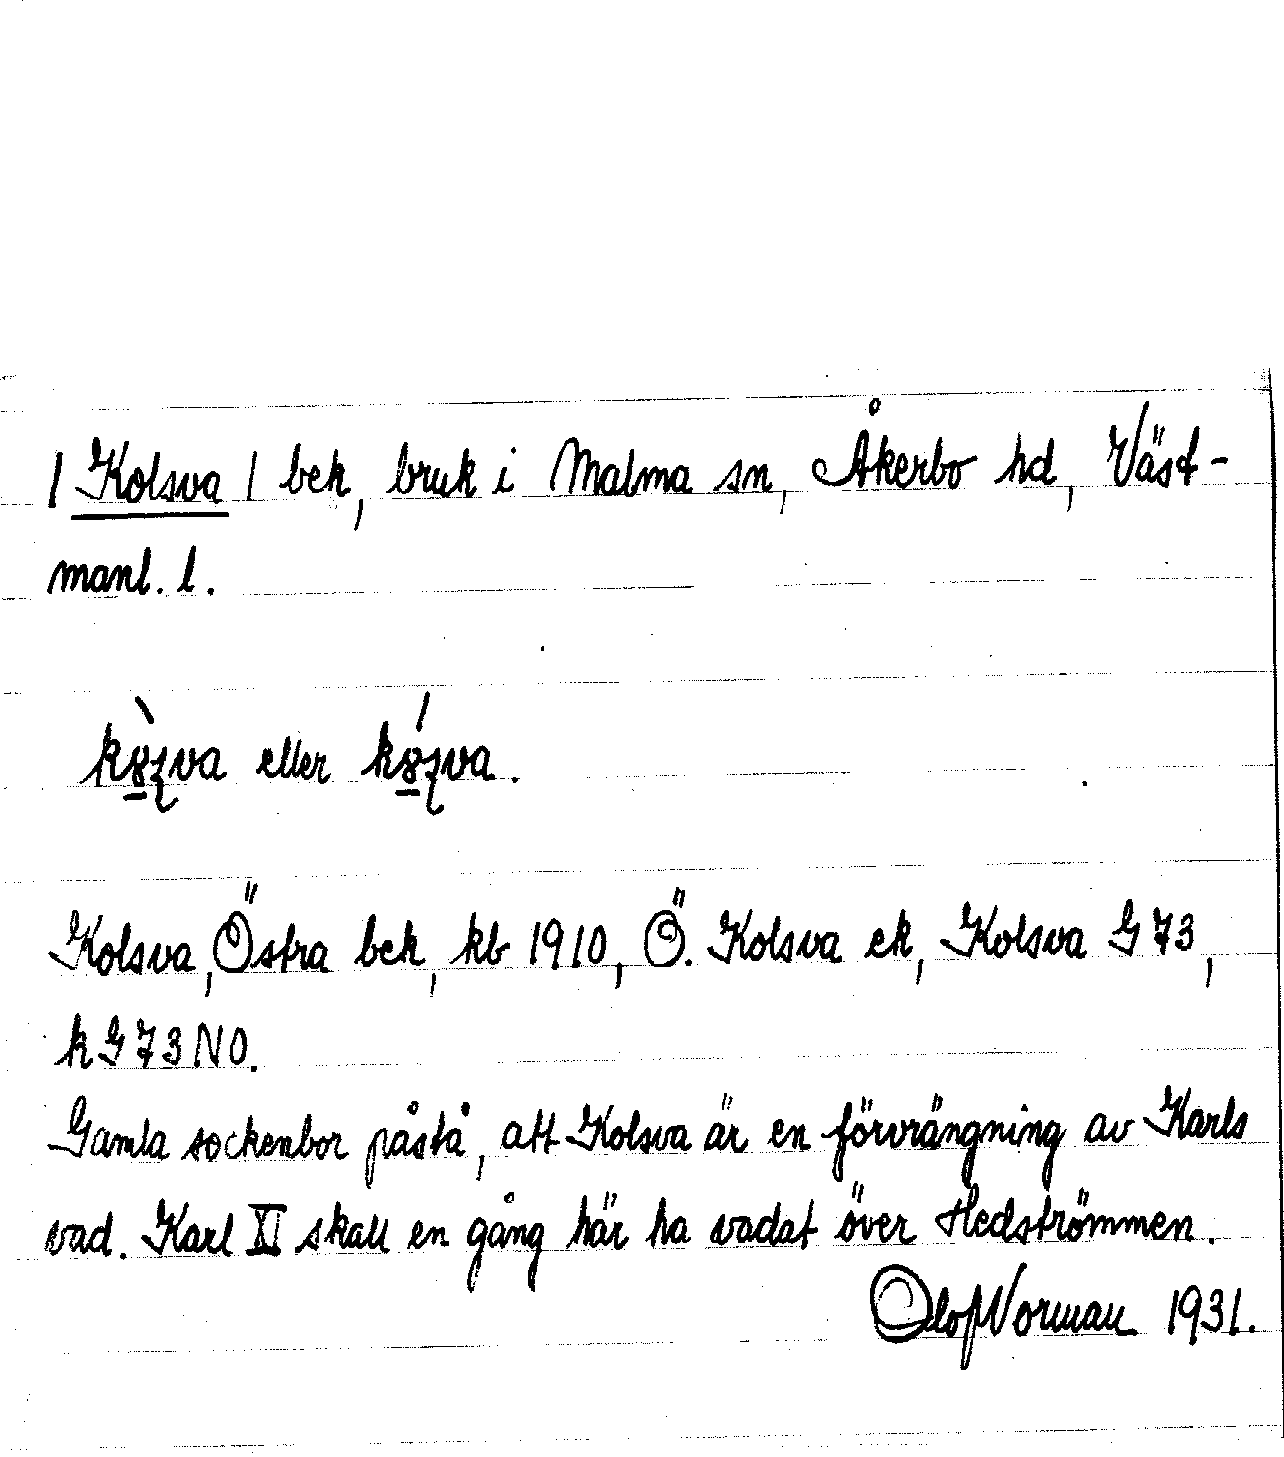 / Kolsva / bek, bruk i Malma sn, Åkerbo hd, Väst-
manl. l.
eller
Kolsva, Östra bek, kb 1910, Ö. Kolsva ek, Kolsva G 73,
k G 73 NO.
Gamla sockenbor påstå, att Kolsva är en förvrängning av Karls
vad. Karl XI skall en gång här ha vadat över Hedströmmen.
Olof Norman 1931.